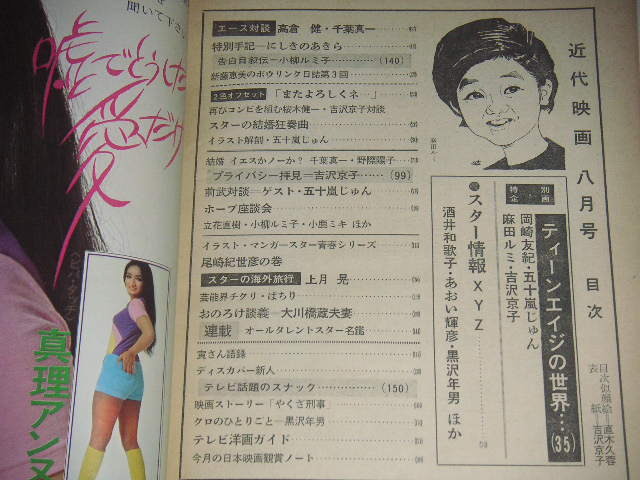 聞いて下さい
嘘でどうした
愛だけ
真理アンヌ
近代映画 八月号 目次
目次似顔絵＝直木久蓉
表紙＝吉沢京子
特別企画
ティーンエイジの世界…(35)
岡崎友紀・五十嵐じゅん
麻田ルミ・吉沢京子
スター情報XYZ
酒井和歌子・あおい輝彦・黒沢年男 ほか
エース対談 高倉 健・千葉真一
特別手記―にしきのあきら
告白自叙伝―小柳ルミ子 (140)
新藤恵美のボウリング日誌第3回
2色オフセット 「またよろしくネ…」
再びコンビを組む桜木健一・吉沢京子対談
スターの結婚狂奏曲
イラスト解剖・五十嵐じゅん
結婚 イエスかノーか? 千葉真一・野際陽子
プライバシー拝見＝吉沢京子 (99)
前武対談＝ゲスト・五十嵐じゅん
ホープ座談会
立花直樹・小柳ルミ子・小鹿ミキ ほか
イラスト・マンガースター青春シリーズ
尾崎紀世彦の巻
スターの海外旅行 上月 晃
芸能界チクリ・ぱちり
おのろけ談義＝大川橋蔵夫妻
連載 オールタレントスター名鑑
寅さん語録
ディスカバー新人
テレビ話題のスナック (150)
映画ストーリー「やくざ刑事」
クロのひとりごと＝黒沢年男
テレビ洋画ガイド
今月の日本映画観賞ノート